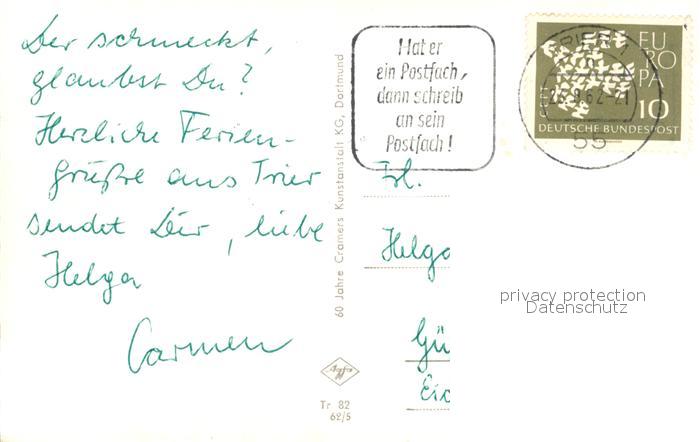 Der schmeckt,
glaubst Du?
Herzliche Ferien-
grüße aus Trier
sendet Dir, liebe
Helga
Carmen
60 Jahre Cramers Kunstanstalt KG, Dortmund
Agfa
Tr 82
62/5
Hat er
ein Postfach,
dann schreib
an sein
Postfach!
EUROPA
CEPT
10
DEUTSCHE BUNDESPOST
55
Frl.
Helga
Gü
Eic
privacy protection
Datenschutz